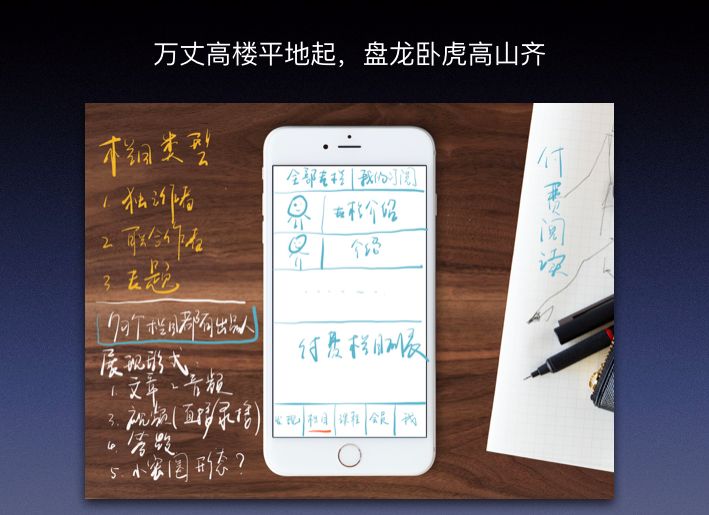 万丈高楼平地起，盘龙卧虎高山齐
栏目类型
1. 独立作者
2. 联合作者
3. 专题
每个栏目都有出品人
展现形式
1. 文章 2. 音频
3. 视频(直播录播)
4. 答题
5. 小密圈形态?
全部专栏 我的订阅
专栏介绍
介绍
付费栏目列表
发现 栏目 课程 会员 我
付费阅读